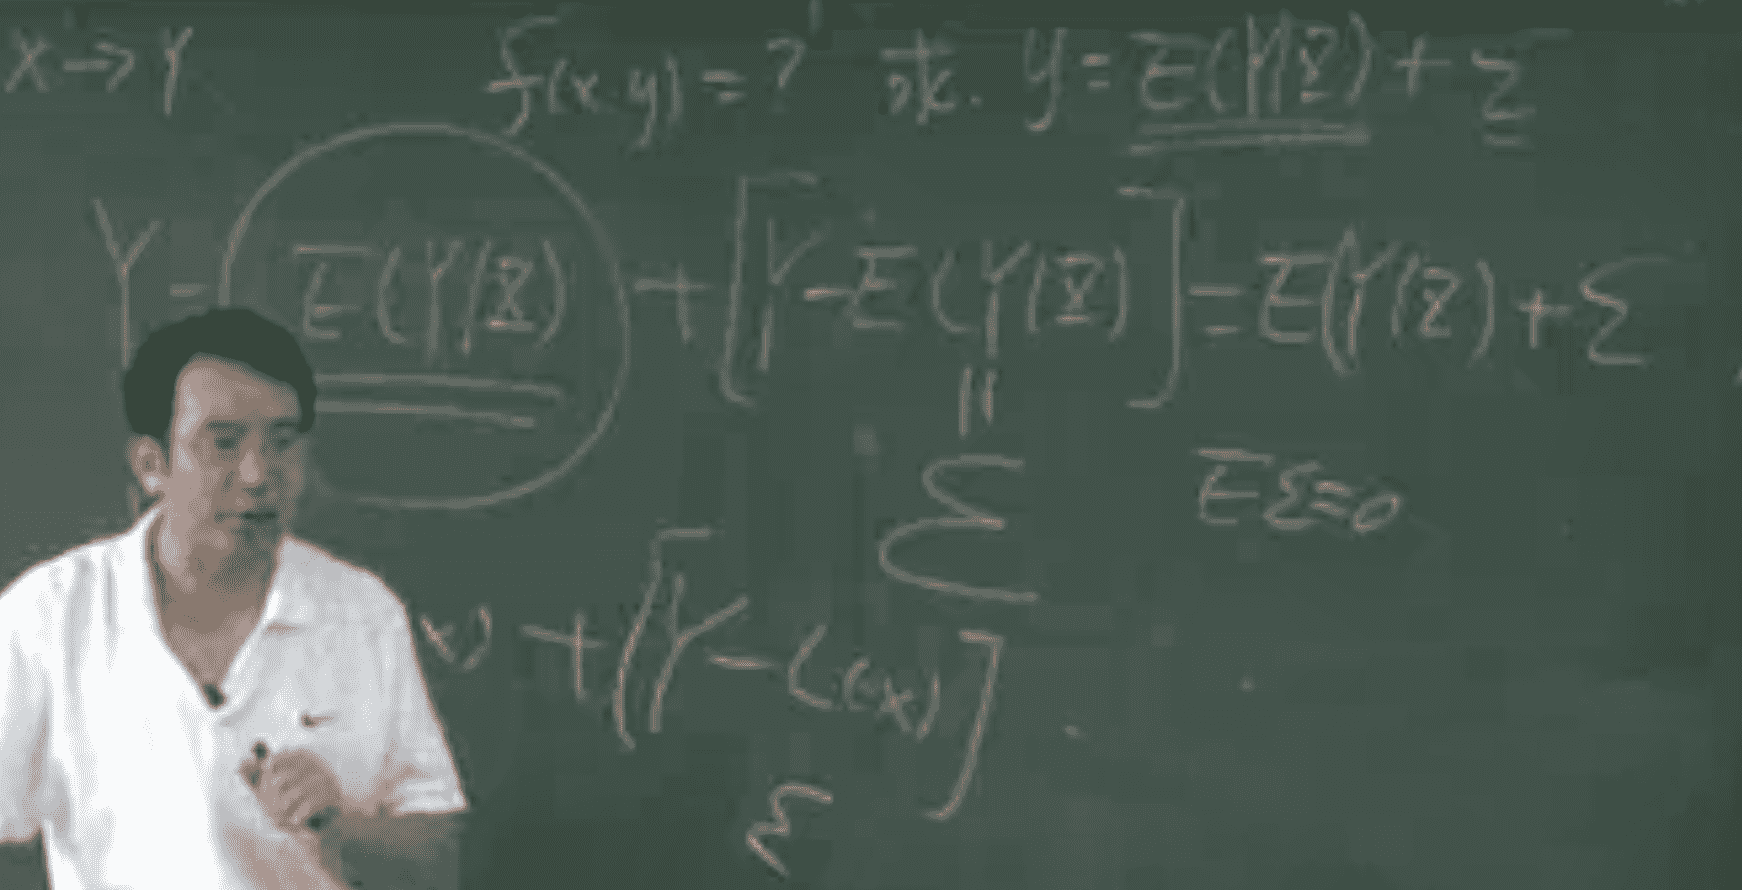 X → Y f(x,y) = ? 求. y = E(Y|X) + ε
Y = E(Y|X) + [Y - E(Y|X)] = E(Y|X) + ε
||
ε Eε=0
x) + [Y - L(x)]
ε